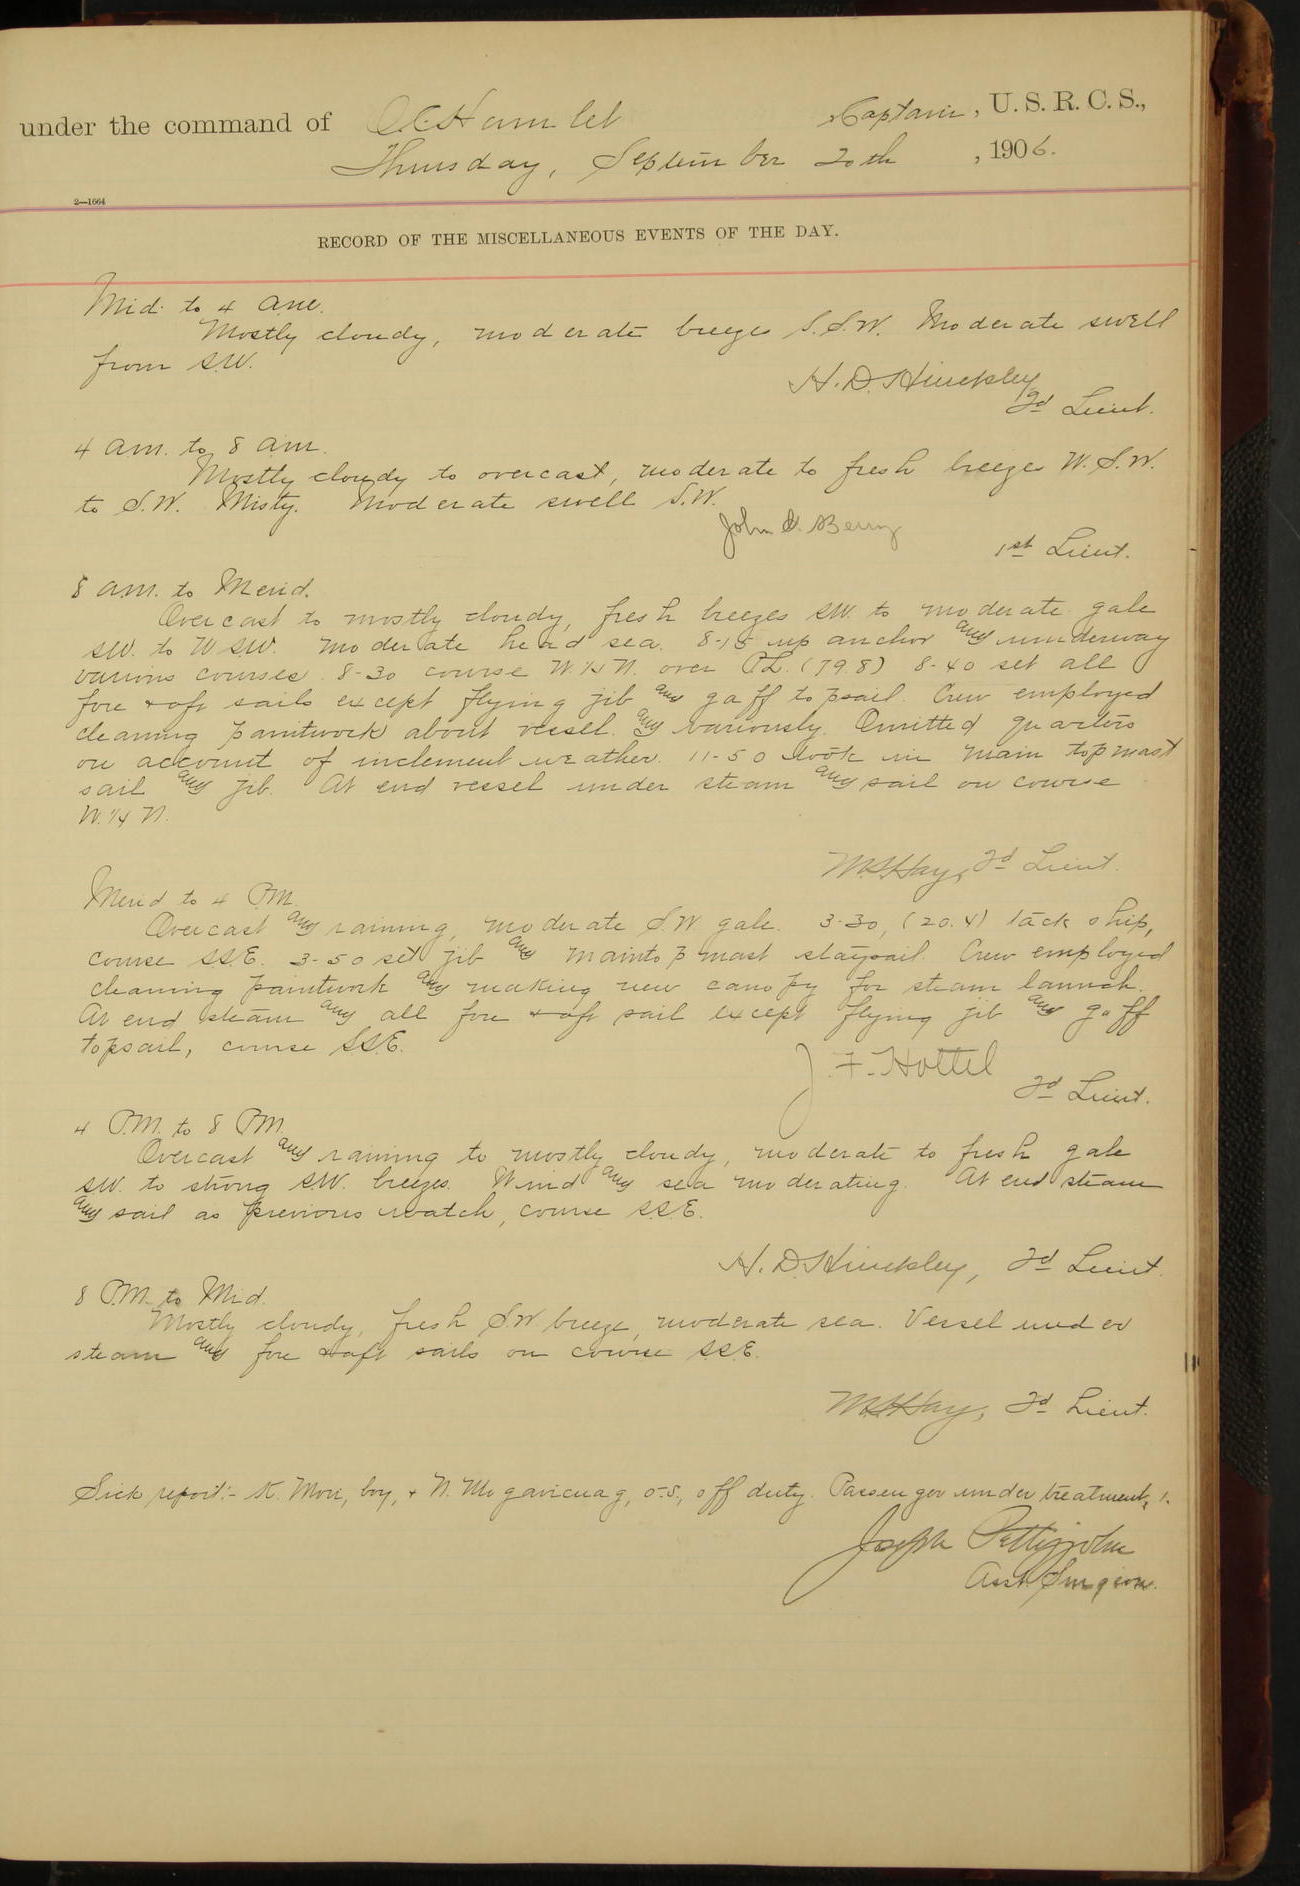 under the command of O.C. Hamlet Captain, U. S. R. C. S.,
Thursday, September 20th, 1906.
2—1664
RECORD OF THE MISCELLANEOUS EVENTS OF THE DAY.
Mid. to 4 a.m.
Mostly cloudy, moderate breezes S.S.W. Moderate swell
from S.W.
H. D. Hinckley
2d Lieut.
4 a.m. to 8 a.m.
Mostly cloudy to overcast, moderate to fresh breezes W.S.W.
to S.W. Misty. Moderate swell S.W.
John G. Berry
1st Lieut.
8 a.m. to Merid.
Overcast to mostly cloudy, fresh breezes SW. to moderate gale
SW. to WSW. Moderate head sea. 8-15 up anchor and underway
various courses. 8-30 course W.1/4N. over P.L. (79.8) 8-40 set all
fore & aft sails except flying jib and gaff topsail. Crew employed
cleaning paintwork about vessel and variously. Omitted quarters
on account of inclement weather. 11-50 took in main topmast
sail and jib. At end vessel under steam and sail on course
W.1/4 N.
2d Lieut.
Merid to 4 P.M.
Overcast and raining, moderate S.W. gale. 3-30, (20.4) tack ship,
course SSE. 3-50 set jib and maintopmast staysail. Crew employed
cleaning paintwork and making new canopy for steam launch.
At end steam and all fore & aft sail except flying jib and gaff
topsail, course SSE.
J. F. Hottel
2d Lieut.
4 P.M. to 8 P.M.
Overcast and raining to mostly cloudy, moderate to fresh gale
SW. to strong SW. breezes. Wind and sea moderating. At end steam
and sail as previous watch, course SSE.
H. D. Hinckley, 2d Lieut.
8 P.M. to Mid.
Mostly cloudy, fresh S.W breeze, moderate sea. Vessel under
steam and fore & aft sails on course SSE.
2d Lieut.
Sick report:- K. Mori, boy, & N. o.s., off duty. Passenger under treatment, 1.
Joseph Pettyjohn
Asst. Surgeon.